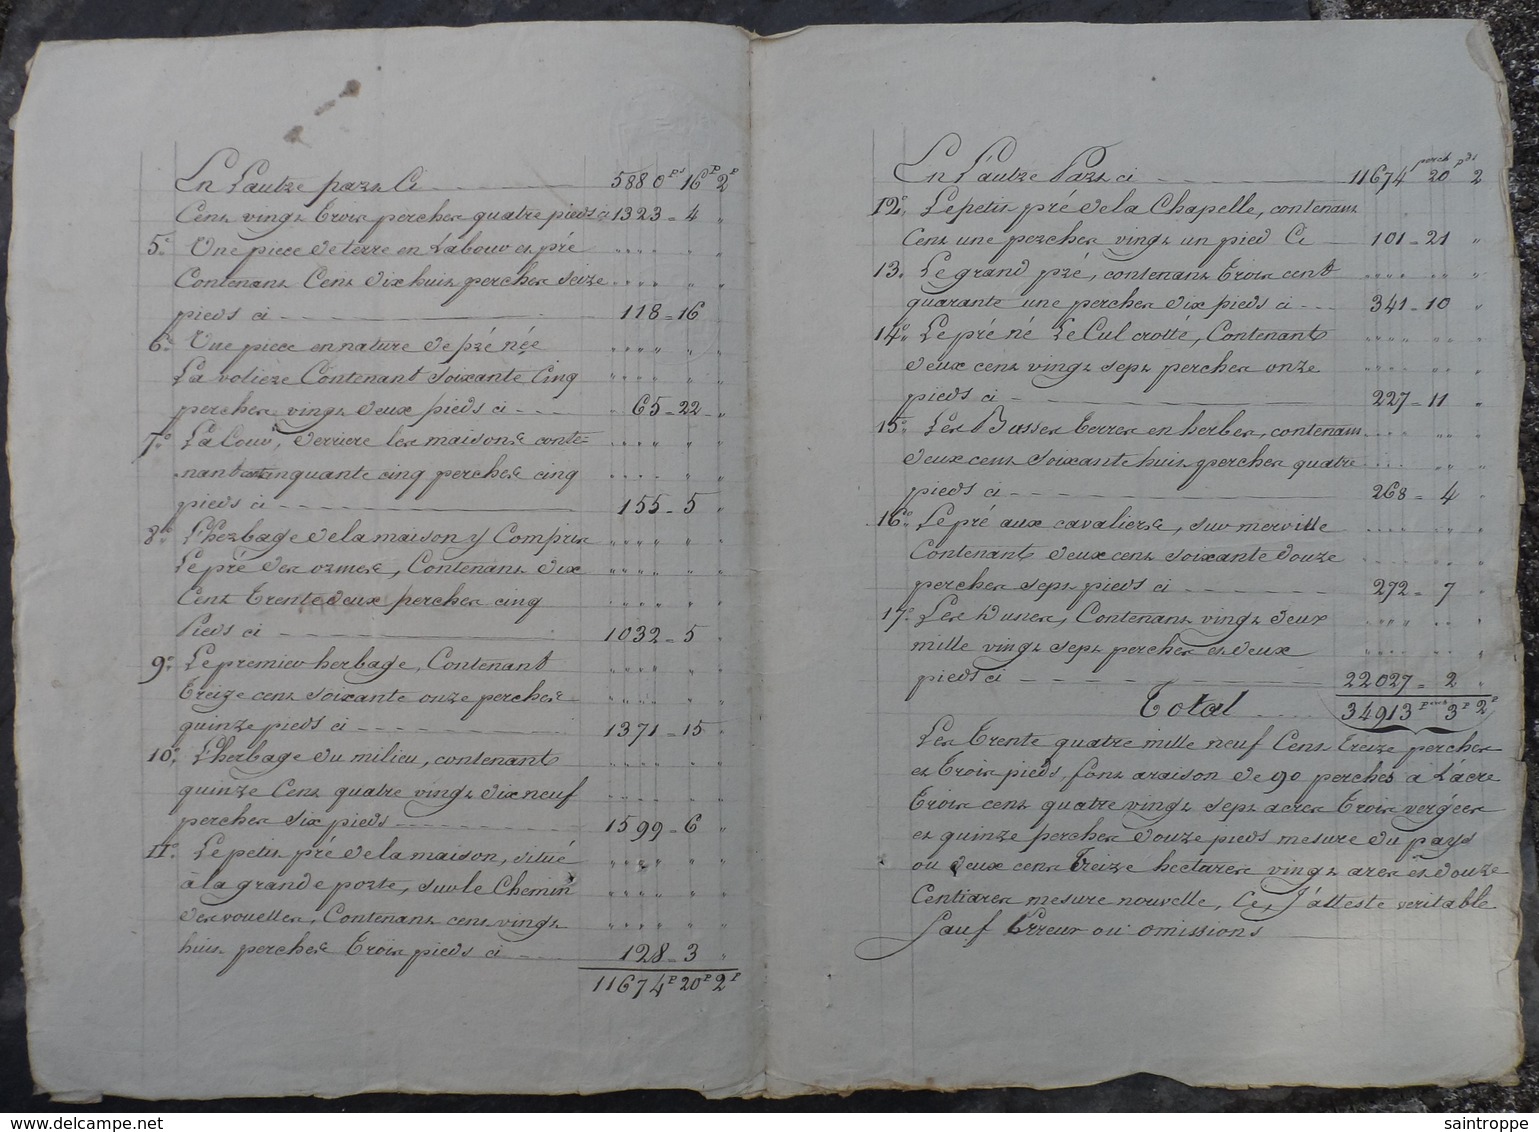 En L'autre part Ci 5880 ps 16 P 2 P
Cent vingt trois perches quatre pieds ci 1323 = 4 "
5° Une piece de terre en Labour et pré
Contenant Cent dix huit perches seize
pieds ci 118 = 16
6° Une piece en nature de pré née
La voliere Contenant soixante Cinq
perches vingt deux pieds ci 65 = 22 "
7° La Cour, derriere les maisons conte=
nant cinquante cinq perches cinq
pieds ci 155 = 5 "
8° L'herbage de la maison y Compris
Le pré des ormes, Contenant dix
Cent trente deux perches cinq
Pieds ci 1032 = 5 "
9° Le premier herbage, Contenant
treize cent soixante onze perches
quinze pieds ci 1371 = 15 "
10° L'herbage du milieu, contenant
quinze Cent quatre vingt dix neuf
perches six pieds 1599 = 6 "
11° Le petit pré de la maison, situé
à la grande porte, sur le Chemin
des vouettes, Contenant cent vingt
huit perches trois pieds ci 128 = 3 "
11674 P 20 P 2 P
En L'autre Part ci 11674 perch 20 pds 2
12° Le petit pré de la Chapelle, contenant
Cent une perches vingt un pied Ci 101 = 21 "
13. Le grand pré, contenant trois cent
quarante une perches dix pieds ci 341 = 10 "
14° Le pré né Le Cul crotté, Contenant
deux cent vingt sept perches onze
pieds ci 227 = 11 "
15° Les Basses terres en herbes, contenant
deux cent soixante huit perches quatre
pieds ci 268 = 4 "
16° Le pré aux cavaliers, sur merville
Contenant deux cent soixante douze
perches sept pieds ci 272 = 7 "
17° Les Dunes, Contenant vingt deux
mille vingt sept perches et deux
pieds ci 22027 = 2 "
Total 34913 perch 3 P 2 P
Les trente quatre mille neuf Cent treize perches
et trois pieds, font a raison de 90 perches à L'acre
trois cent quatre vingt sept acres trois vergées
et quinze perches douze pieds mesure du pays
ou deux cent treize hectares vingt ares et douze
Centiares mesure nouvelle, Ce, J'atteste veritable
Sauf Erreur ou omissions
saintroppe
www.delcampe.net